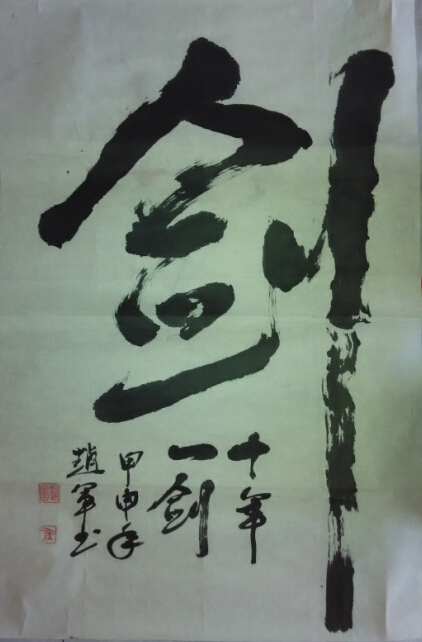 剑
十年
一剑
甲申年
趙军书